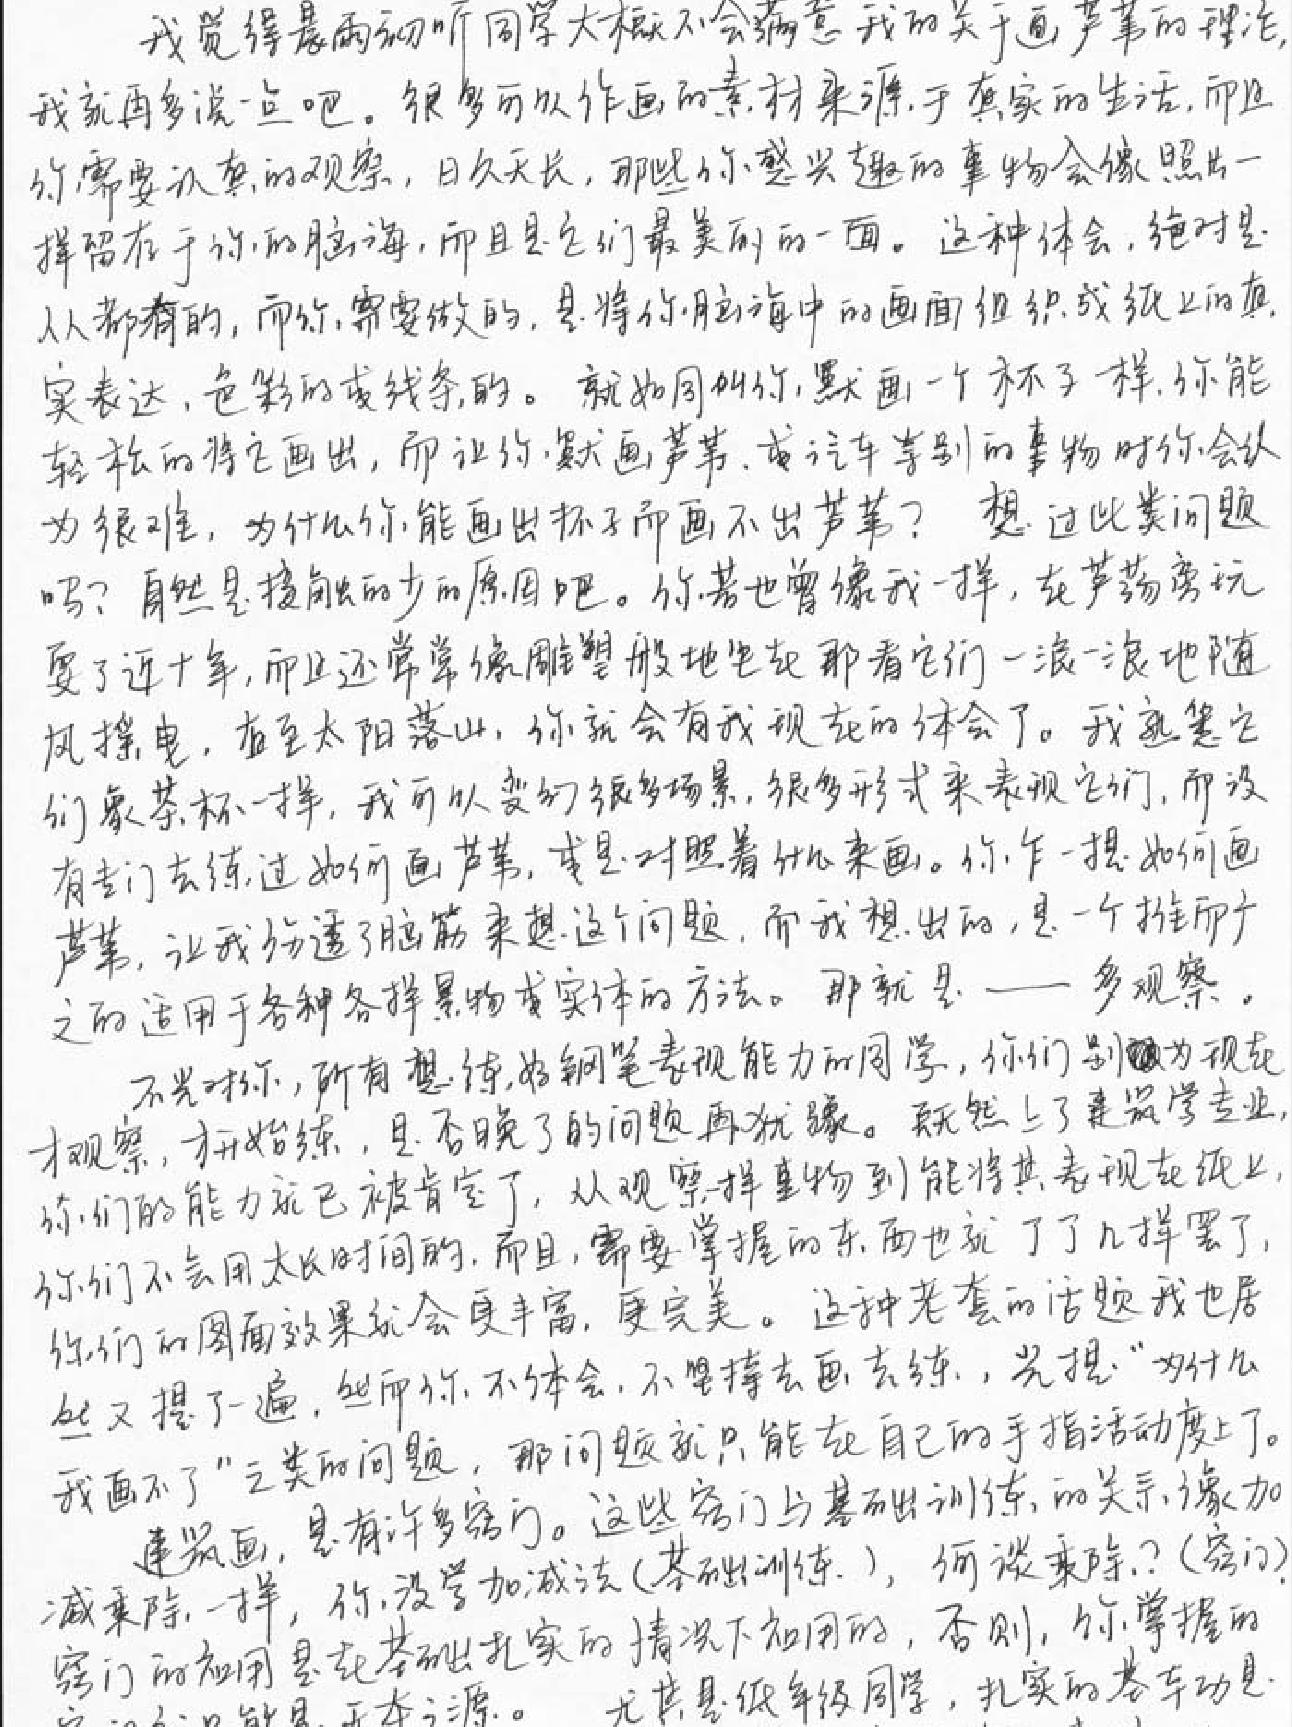 我觉得晨雨初听同学大概不会满意我的关于画芦苇的理论,
我就再多说一点吧。很多可以作画的素材来源于真实的生活,而且
你需要认真的观察,日久天长,那些你感兴趣的事物会像照片一
样留存于你的脑海,而且是它们最美丽的一面。这种体会,绝对是
人人都有的,而你需要做的,是将你脑海中的画面组织成纸上的真
实表达,色彩的或线条的。就如同叫你默画一个杯子一样,你能
轻松的将它画出,而让你默画芦苇、或汽车等别的事物时你会认
为很难,为什么你能画出杯子而画不出芦苇?想过此类问题
吗?自然是接触的少的原因吧。你若也曾像我一样,在芦荡旁玩
耍了近十年,而且还常常像雕塑般地坐在那看它们一浪一浪地随
风摇曳,直至太阳落山,你就会有我现在的体会了。我熟悉它
们象茶杯一样,我可以变幻很多场景,很多形式来表现它们,而没
有专门去练过如何画芦苇,或是对照着什么来画。你乍一提如何画
芦苇,让我伤透了脑筋来想这个问题,而我想出的,是一个推而广
之的适用于各种各样景物或实体的方法。那就是——多观察。
不光对你,所有想练好钢笔表现能力的同学,你们别为现在
才观察,才开始练,是否晚了的问题再犹豫。既然上了建筑学专业,
你们的能力就已被肯定了,从观察一样事物到能将其表现在纸上,
你们不会用太长时间的,而且,需要掌握的东西也就了了几样罢了,
你们的图面效果就会更丰富,更完美。这种老套的话题我也居
然又提了一遍,然而你不体会,不坚持去画去练,光提“为什么
我画不了”之类的问题,那问题就只能在自己的手指活动度上了。
建筑画,是有许多窍门。这些窍门与基础训练的关系像加
减乘除一样,你没学加减法(基础训练),何谈乘除?(窍门)
窍门的初用是在基础扎实的情况下初用的,否则,你掌握的
尤其是低年级同学,扎实的基本功是